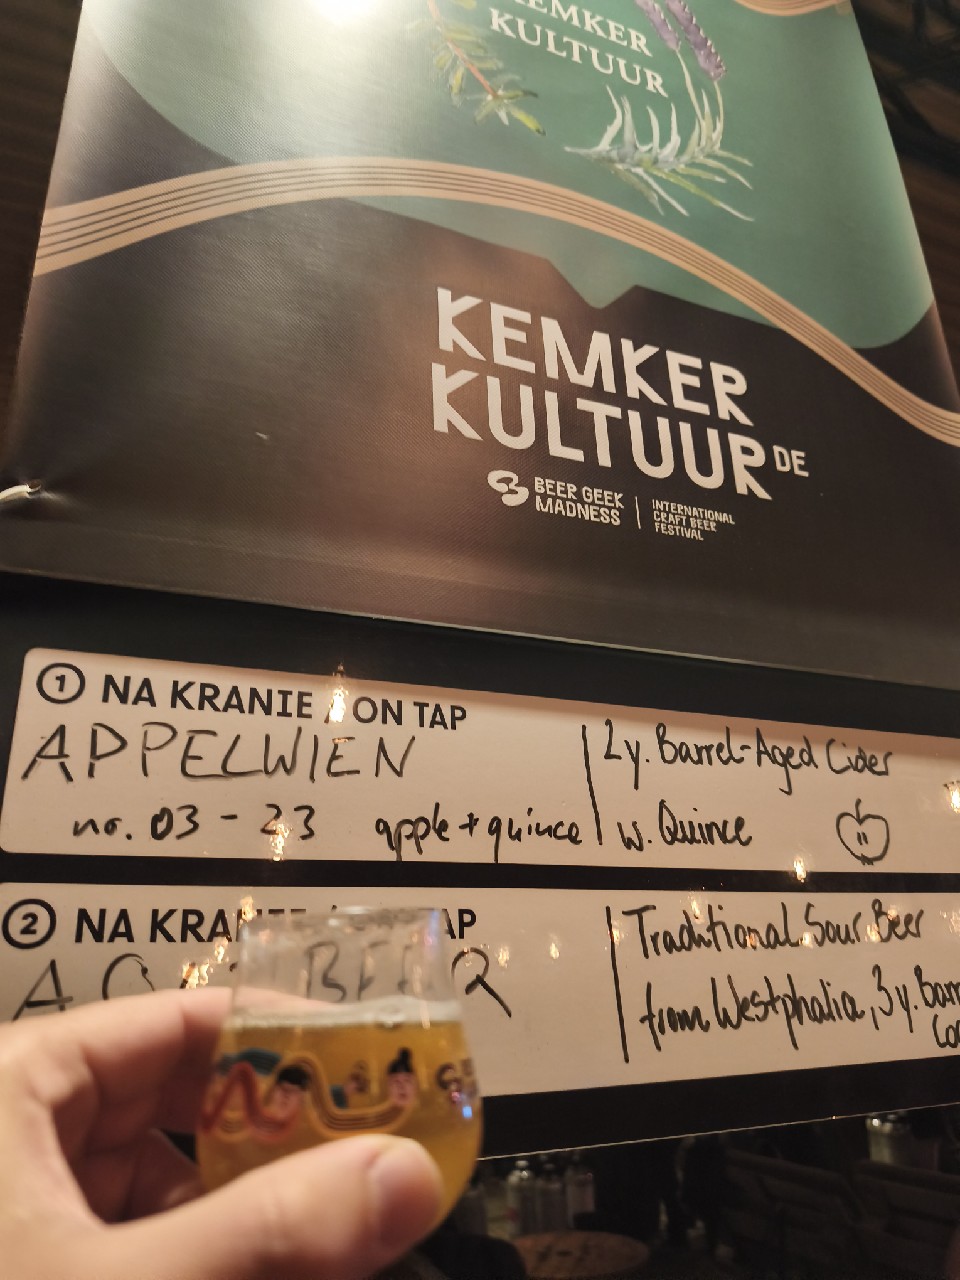 KEMKER
KULTUUR
KEMKER
KULTUUR DE
BEER GEEK
MADNESS
INTERNATIONAL
CRAFT BEER
FESTIVAL
1 NA KRANIE / ON TAP
APPELWIEN
no. 03 - 23 apple + quince
2y. Barrel-Aged Cider
w. Quince
2 NA
BEER
Traditional Sour Beer
from Westphalia, 3y.